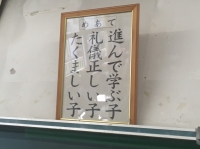 めあて
進んで学ぶ子
礼儀正しい子
たくましい子